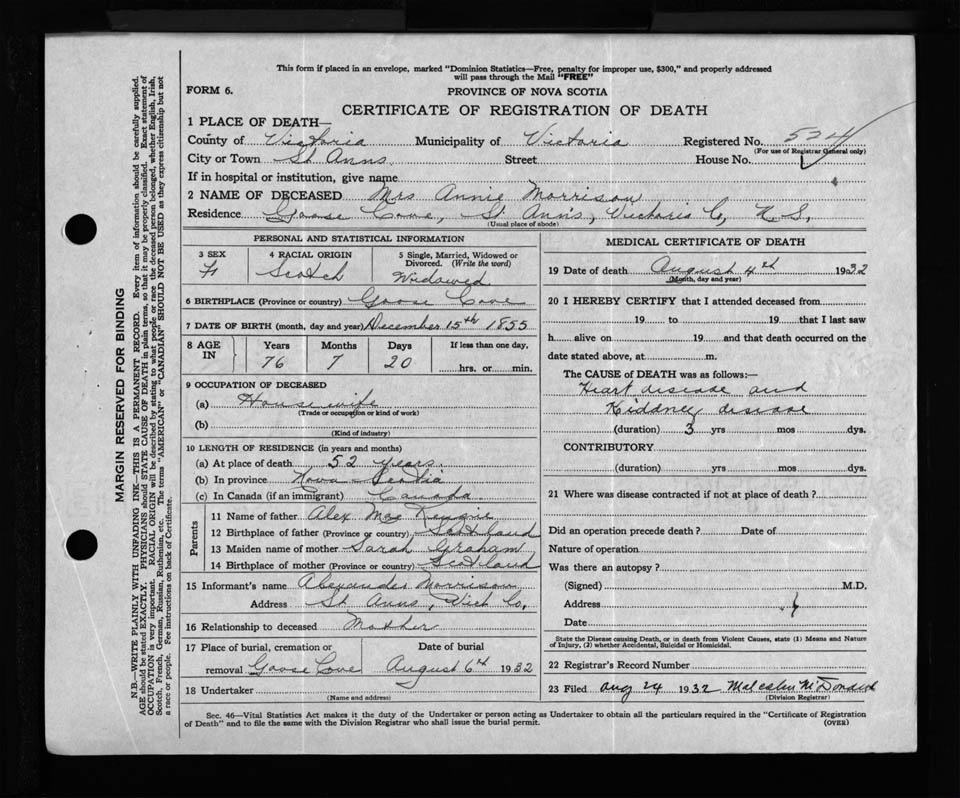 This form if placed in an envelope, marked "Dominion Statistics—Free, penalty for improper use, $300," and properly addressed
will pass through the Mail "FREE"
FORM 6.
PROVINCE OF NOVA SCOTIA
CERTIFICATE OF REGISTRATION OF DEATH
1 PLACE OF DEATH—
County of Victoria Municipality of Victoria Registered No. 524
(For use of Registrar General only)
City or Town St Anns Street House No.
If in hospital or institution, give name
2 NAME OF DECEASED Mrs Annie Morrison
Residence Goose Cove, St Anns, Victoria Co, N.S,
(Usual place of abode)
PERSONAL AND STATISTICAL INFORMATION
3 SEX F
4 RACIAL ORIGIN Scotch
5 Single, Married, Widowed or Divorced. (Write the word) Widowed
6 BIRTHPLACE (Province or country) Goose Cove
7 DATE OF BIRTH (month, day and year) December 15th 1855
8 AGE IN Years Months Days If less than one day,
76 7 20 hrs. or min.
9 OCCUPATION OF DECEASED
(a) House wife
(Trade or occupation or kind of work)
(b)
(Kind of industry)
10 LENGTH OF RESIDENCE (in years and months)
(a) At place of death 52 years.
(b) In province Nova Scotia
(c) In Canada (if an immigrant) Canada.
Parents
11 Name of father Alex Mac Kenzie
12 Birthplace of father (Province or country) Scotland
13 Maiden name of mother Sarah Graham
14 Birthplace of mother (Province or country) Scotland
15 Informant's name Alexander Morrison
Address St Anns, Vict Co,
16 Relationship to deceased Mother
17 Place of burial, cremation or Date of burial
removal Goose Cove August 6th 1932
18 Undertaker
(Name and address)
MEDICAL CERTIFICATE OF DEATH
19 Date of death August 4th 1932
(Month, day and year)
20 I HEREBY CERTIFY that I attended deceased from
19 to 19 that I last saw
h alive on 19 and that death occurred on the
date stated above, at m.
The CAUSE of DEATH was as follows:—
Heart disease and
Kiddney disease
(duration) 3 yrs mos dys.
CONTRIBUTORY
(duration) yrs mos dys.
21 Where was disease contracted if not at place of death?
Did an operation precede death? Date of
Nature of operation
Was there an autopsy?
(Signed) M.D.
Address
Date
State the Disease causing Death, or in death from Violent Causes, state (1) Means and Nature
of Injury, (2) whether Accidental, Suicidal or Homicidal.
22 Registrar's Record Number
23 Filed Aug 24 1932 Malcolm McDonald
(Division Registrar)
Sec. 46—Vital Statistics Act makes it the duty of the Undertaker or person acting as Undertaker to obtain all the particulars required in the "Certificate of Registration
of Death" and to file the same with the Division Registrar who shall issue the burial permit. (OVER)
MARGIN RESERVED FOR BINDING
N.B.—WRITE PLAINLY WITH UNFADING INK—THIS IS A PERMANENT RECORD. Every item of information should be carefully supplied.
AGE should be stated EXACTLY. PHYSICIANS should STATE CAUSE OF DEATH in plain terms, so that it may be properly classified. Exact statement of
OCCUPATION is very important. RACIAL ORIGIN will be described by stating to what people or race the deceased person belonged, whether English, Irish,
Scotch, French, German, Russian, Ruthenian, etc. The terms "AMERICAN" or "CANADIAN" SHOULD NOT BE USED as they express citizenship but not
a race or people. See instructions on back of Certificate.